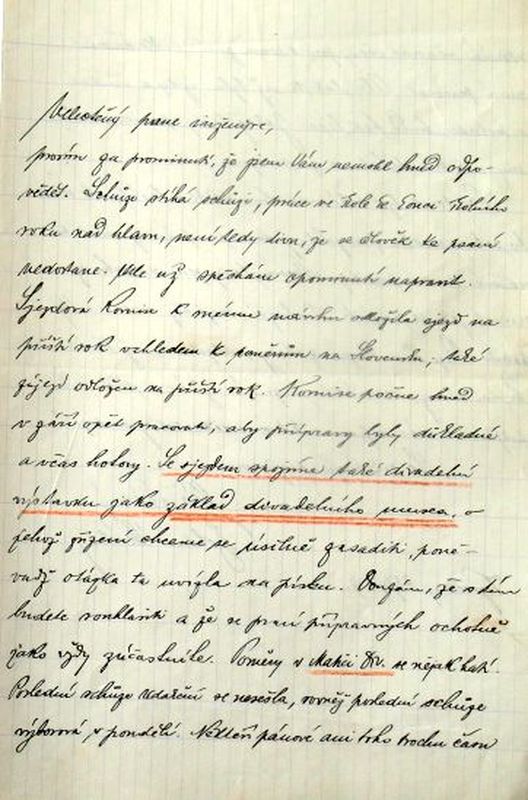 Velectěný pane inženýre,
prosím za prominutí, že jsem Vám nemohl hned odpo-
vědět. Schůze stíhá schůzi, práce ve škole ke konci školního
roku nad hlavu, není tedy divu, že se člověk ke psaní
nedostane. Ale už spěchám opomenutí napravit.
Sjezdová komise k mému návrhu odložila sjezd na
příští rok vzhledem k poměrům na Slovensku; také
zájezd odložen na příští rok. Komise počne hned
v září opět pracovati, aby přípravy byly důkladné
a včas hotovy. Se sjezdem spojíme také divadelní
výstavku jako základ divadelního musea, o
jehož zřízení chceme se úsilně zasaditi, poně-
vadž otázka ta uvízla na písku. Doufám, že s tím
budete souhlasiti a že se prací přípravných ochotně
jako vždy zúčastníte. Poměry v Matici Div. se nějak kalí.
Poslední schůze se nesešla, rovněž poslední schůze
výborová v pondělí. Někteří pánové ani toho trochu času